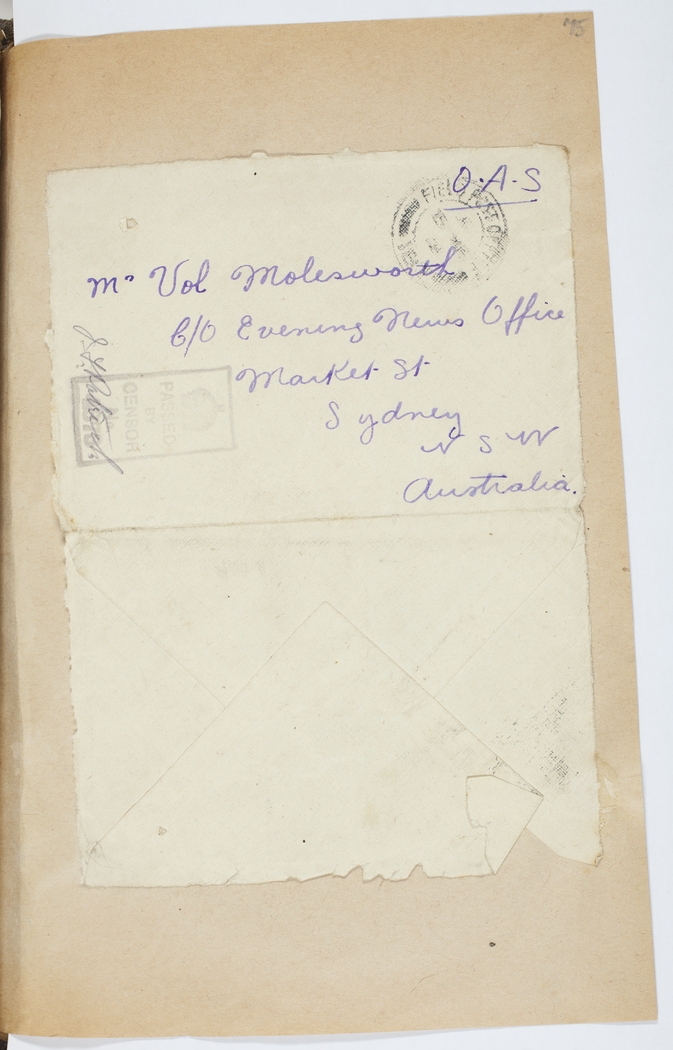 75
O.A.S
FIELD POST OFFICE
Mr Vol Molesworth
C/O Evening News Office
Market St
Sydney
N S W
Australia.
PASSED
BY
CENSOR